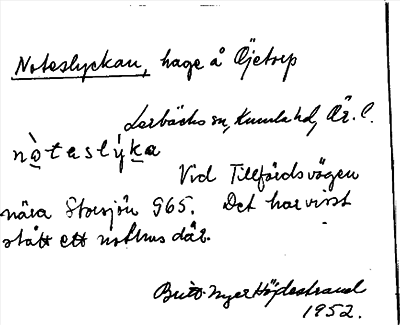 Noteslyckan, hage å Öjetorp
Lerbäcks sn, Kumla hd, Ör. l.
nò̱taslýḵa
Vid Tillfärdsvägen
nära Storsjön 965. Det har visst
stått ett nothus där.
Britt Nyer Höjdestrand
1952.